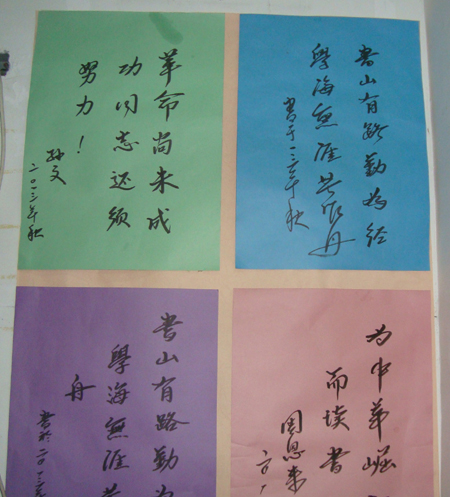 革命尚未成
功同志还须
努力！
孙文
二〇一三年秋
書山有路勤為径
學海無涯苦作舟
書于二〇一三年秋
書山有路勤為
學海無涯苦
舟
為中華崛
而读書
周恩来